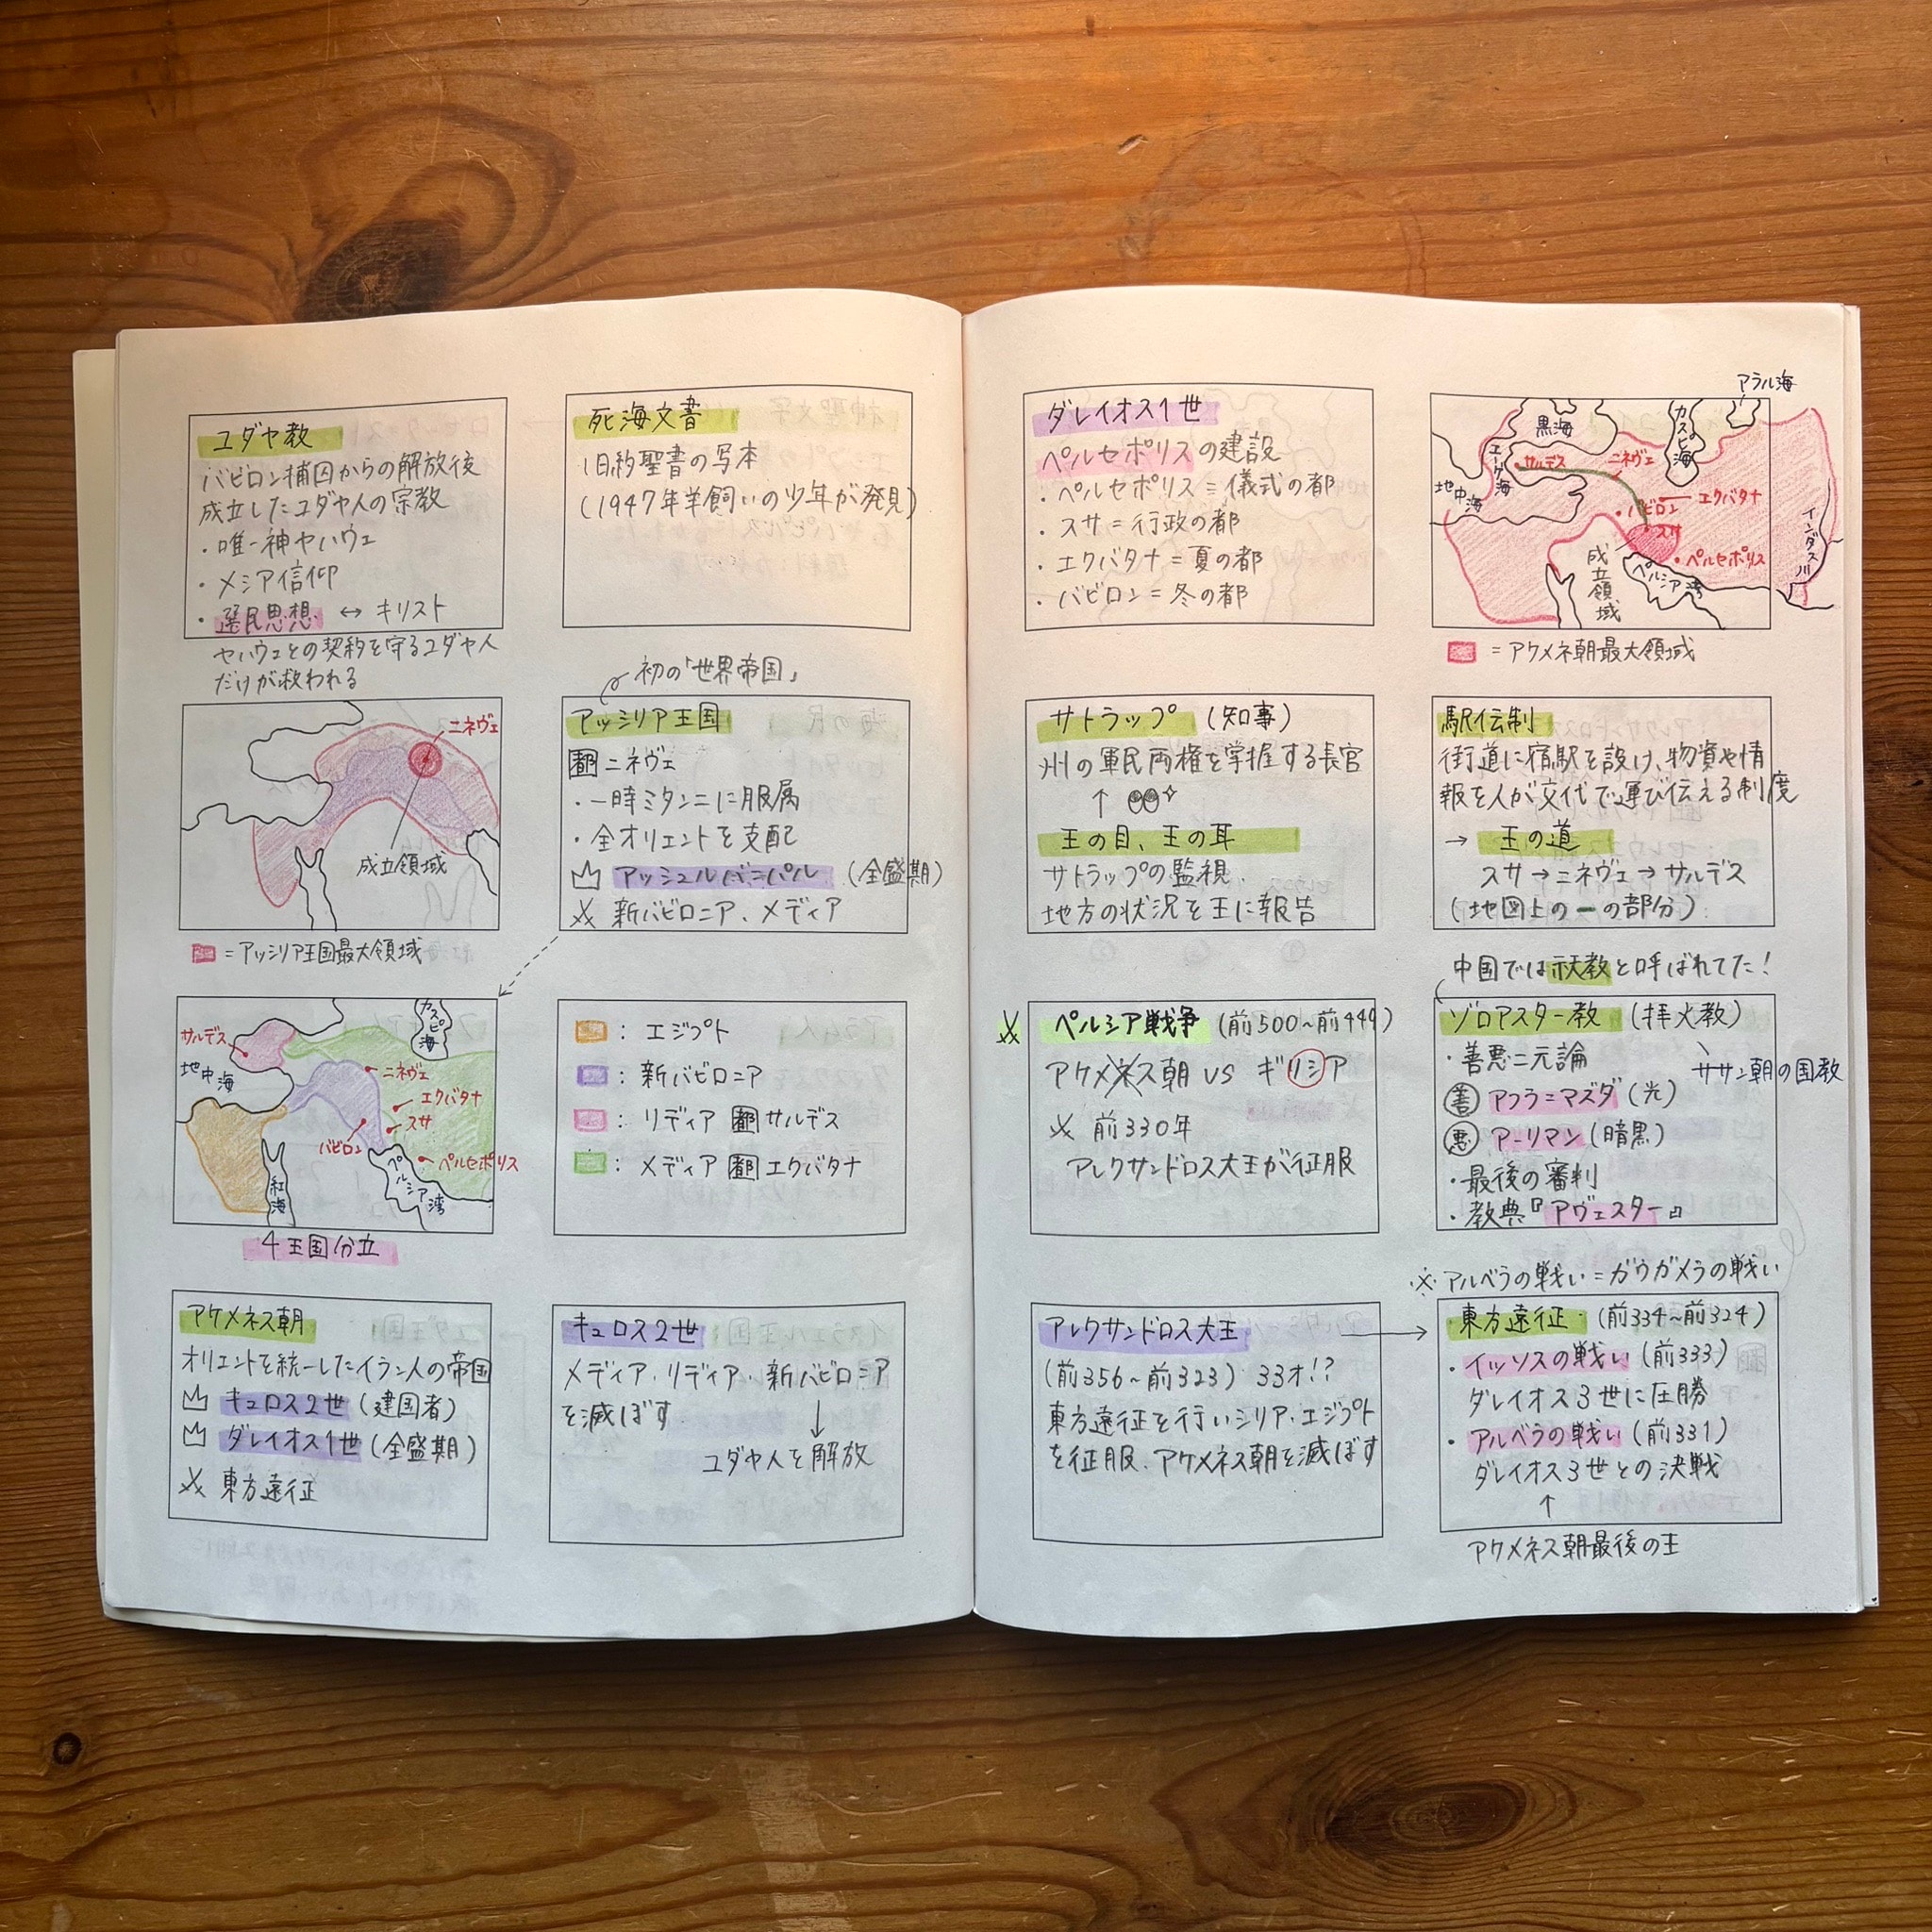 ユダヤ教
バビロン捕囚からの解放後
成立したユダヤ人の宗教
・唯一神ヤハウェ
・メシア信仰
・選民思想 ↔ キリスト
ヤハウェとの契約を守るユダヤ人
だけが救われる
死海文書
旧約聖書の写本
(1947年羊飼いの少年が発見)
ニネヴェ
成立領域
= アッシリア王国最大領域
初の「世界帝国」
アッシリア王国
都 ニネヴェ
・一時ミタンニに服属
・全オリエントを支配
アッシュルバニパル (全盛期)
新バビロニア、メディア
サルデス
地中海
カスピ海
ニネヴェ
エクバタナ
スサ
バビロン
ペルセポリス
ペルシア湾
紅海
4王国分立
: エジプト
: 新バビロニア
: リディア 都 サルデス
: メディア 都 エクバタナ
アケメネス朝
オリエントを統一したイラン人の帝国
キュロス2世 (建国者)
ダレイオス1世 (全盛期)
東方遠征
キュロス2世
メディア・リディア・新バビロニア
を滅ぼす
↓
ユダヤ人を解放
ダレイオス1世
ペルセポリスの建設
・ペルセポリス=儀式の都
・スサ=行政の都
・エクバタナ=夏の都
・バビロン=冬の都
アラル海
黒海
カスピ海
エーゲ海
サルデス
ニネヴェ
地中海
エクバタナ
バビロン
スサ
ペルセポリス
インダス川
成立領域
ペルシア湾
= アケメネ朝最大領域
サトラップ (知事)
州の軍民両権を掌握する長官
↑
王の目、王の耳
サトラップの監視.
地方の状況を王に報告
駅伝制
街道に宿駅を設け、物資や情
報を人が交代で運び伝える制度
→ 王の道
スサ→ニネヴェ→サルデス
(地図上の ー の部分)
ペルシア戦争 (前500~前449)
アケメネス朝 VS ギリシア
前330年
アレクサンドロス大王が征服
中国では祆教と呼ばれてた!
ゾロアスター教 (拝火教)
ササン朝の国教
・善悪二元論
善 アフラ=マズダ (光)
悪 アーリマン (暗黒)
・最後の審判
・教典『アヴェスター』
アレクサンドロス大王
(前356~前323) 33才!?
東方遠征を行いシリア・エジプト
を征服、アケメネス朝を滅ぼす
※アルベラの戦い=ガウガメラの戦い
東方遠征 (前334~前324)
・イッソスの戦い (前333)
ダレイオス3世に圧勝
・アルベラの戦い (前331)
ダレイオス3世との決戦
↑
アケメネス朝最後の王